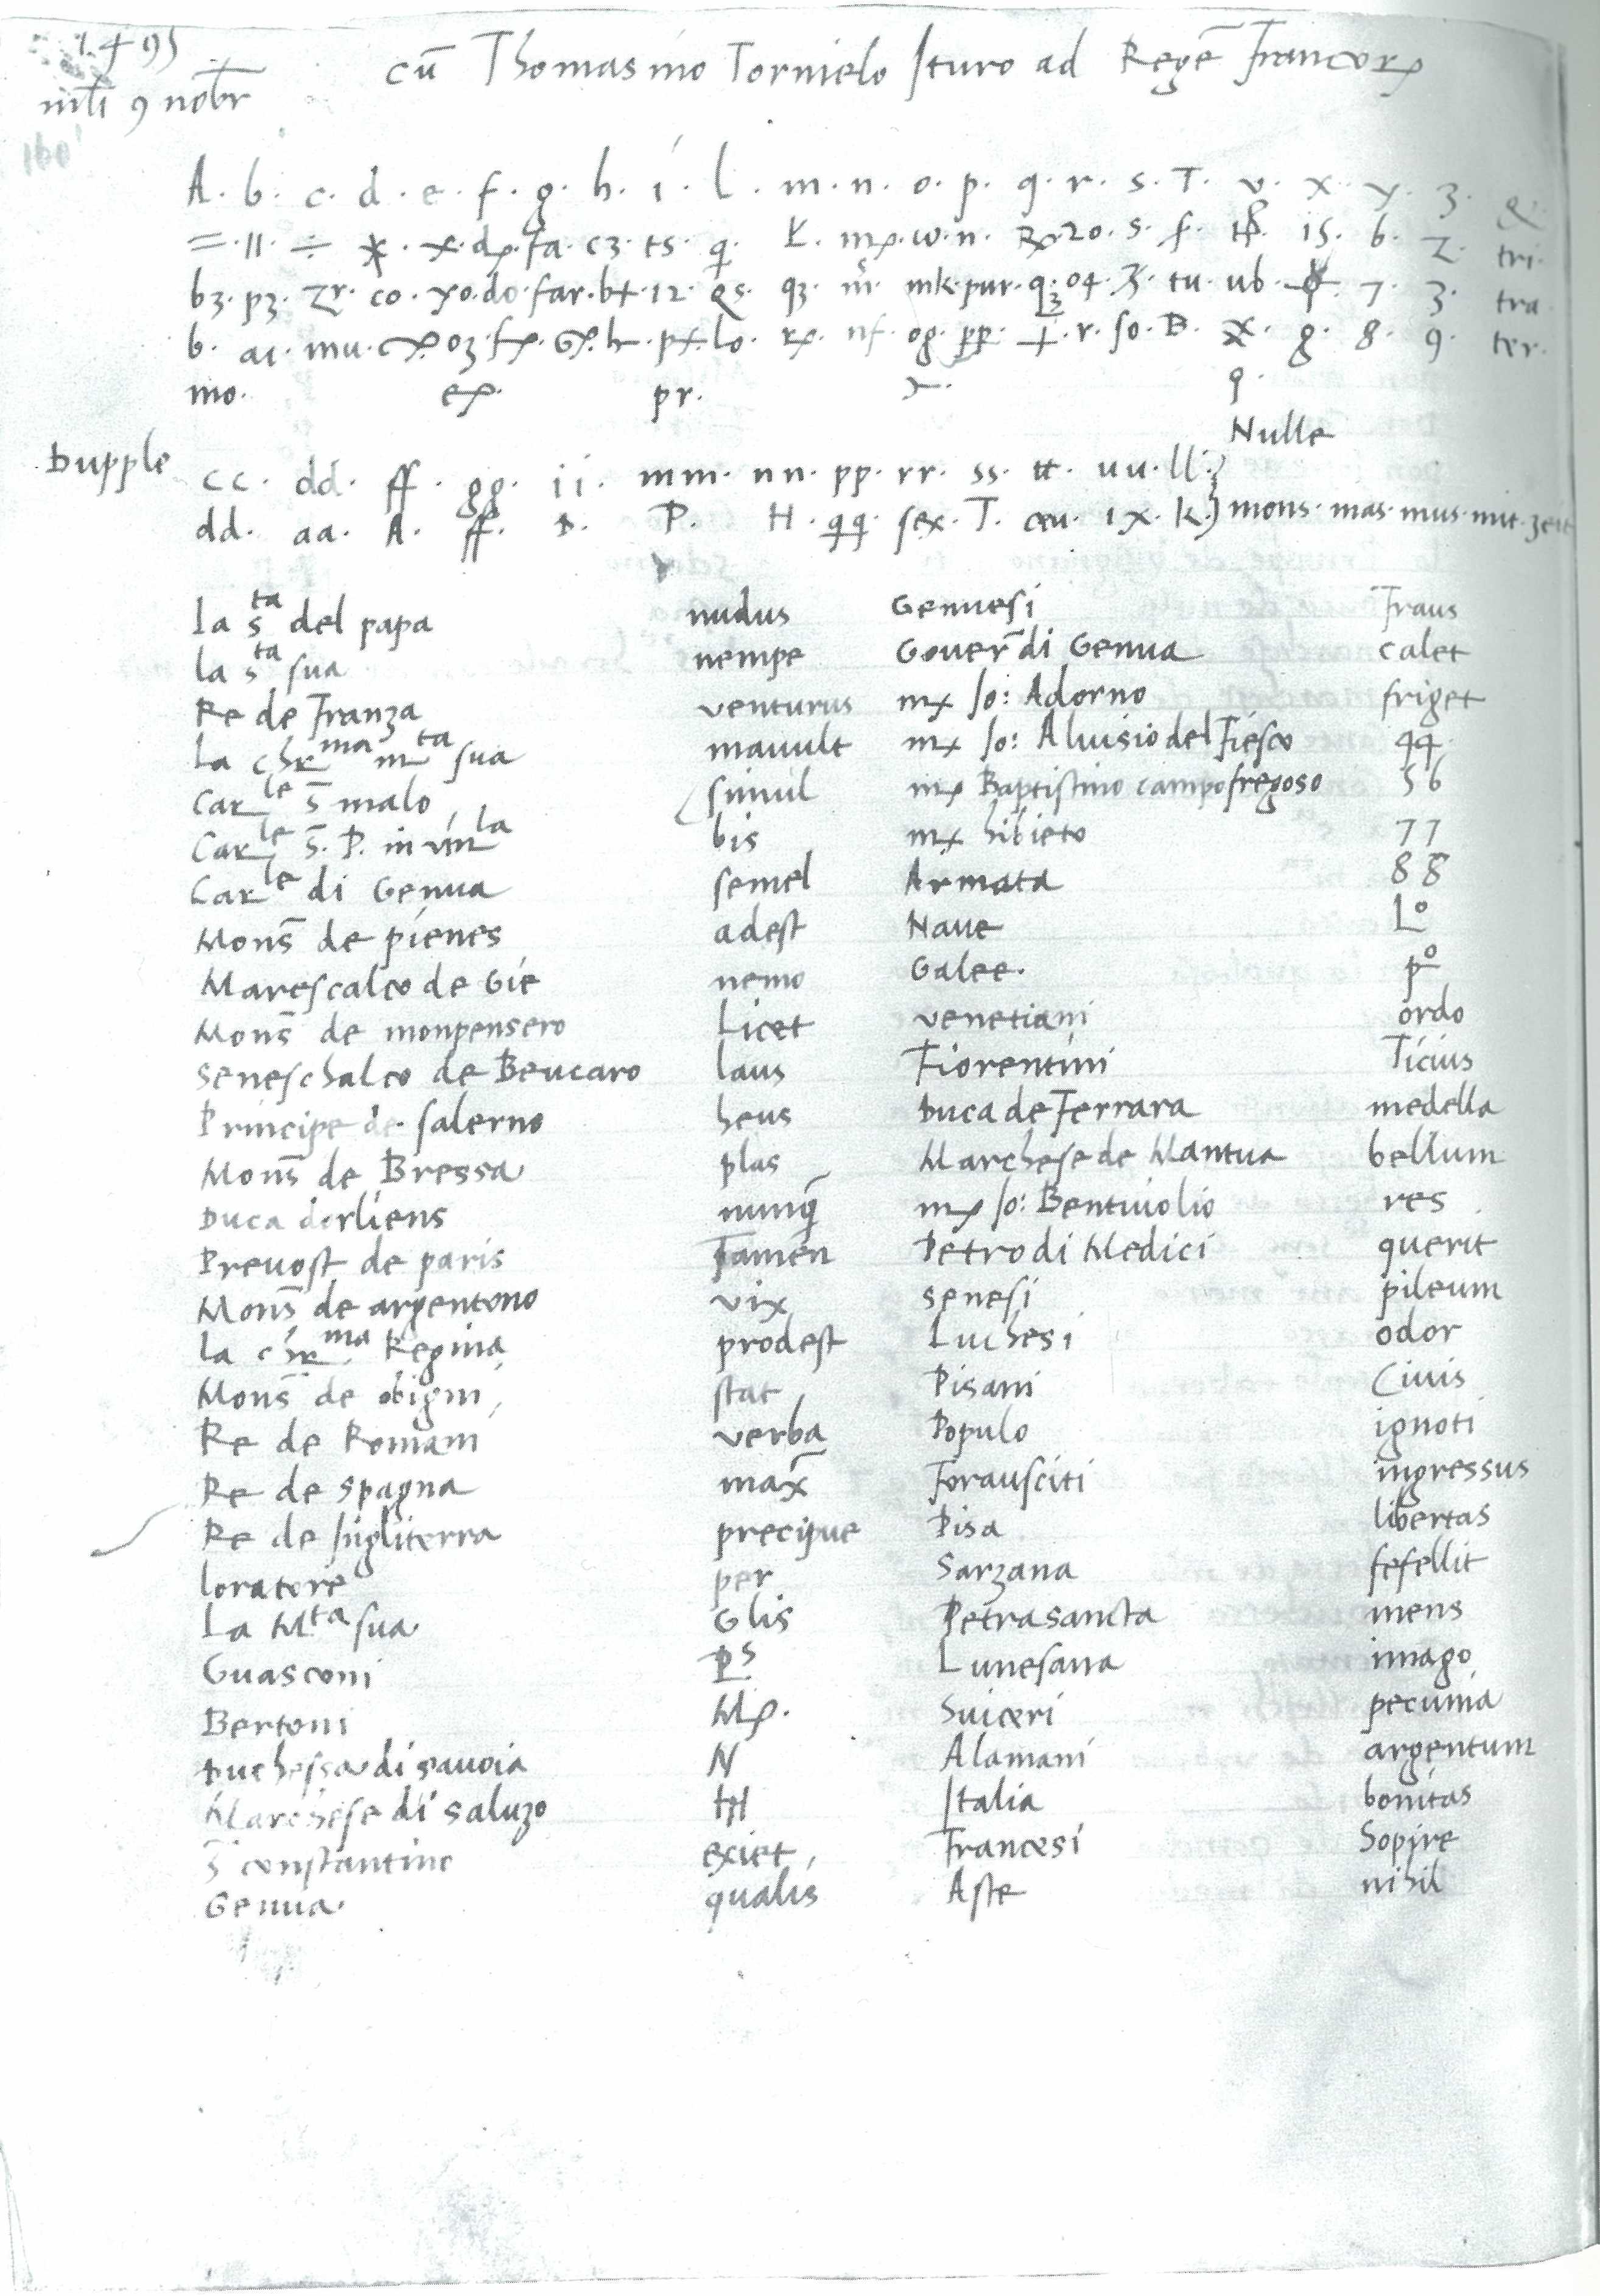 1495
mli 9 nobr
cū Thomasino Tornielo Ituro ad Regē Francor
160
A. b. c. d. e. f. g. h. i. l. m. n. o. p. q. r. s. T. v. x. y. z. &
=. 11. ÷ fa. cz. ts. n. 20. s. f. is. 6. z. tri.
bz. pz. co. yo. do. far. 12. mk. pur. 04. tu. ub. 7. 3. tra.
b. ai. mu. oz. h. lo. nf. og. pp. r. so. B. g. 8. 9. ter.
mo. pr. 9.
Nulle
Dupple cc. dd. ff. gg. ii. mm. nn. pp. rr. ss. tt. uu. ll.
dd. aa. A. ff. P. H. qq. sex. T. ix. k. mons. mas. mus. mit. zeit
la sta del papa nudus Genuesi Fraus
la sta sua nempe Gouerñ di Genua calet
Re de Franza venturus Io: Adorno friget
La chrma mta sua mauult Io: Aluisio del Fiesco qq.
Carle s̄ malo simul Baptistino campofregoso 56
Carle s̄. P. in vinla bis hibieto 77
Carle di Genua semel Armata 88
Mons̄ de pienes adest Naue Lo
Marescalco de Gie nemo Galee. po
Mons̄ de monpensero Licet venetiani ordo
Seneschalco de Beucaro laus Fiorentini Ticius
Principe de salerno heus Duca de Ferrara medella
Mons̄ de Bressa plas Marchese de Mantua bellum
Duca dorliens nunq̄ Io: Bentiuolio res
Preuost de paris Tamen Petro di Medici querit
Mons̄ de argentono vix senesi pileum
la chrma Regina prodest Luchesi odor
Mons̄ de obigni stat Pisani Ciuis
Re de Romani verba Populo ignoti
Re de spagna max̄ Forausciti ingressus
Re de Ingliterra precipue Pisa libertas
loratore per Sarzana fefellit
La Mta sua Glis Petrasancta mens
Guasconi Ps Lunesana imago
Bertoni Suiceri pecunia
Duchessa di sauoia N Alamani argentum
Marchese di saluzo Italia bonitas
constantino exiet Francesi Sopire
Genua qualis Aste nihil